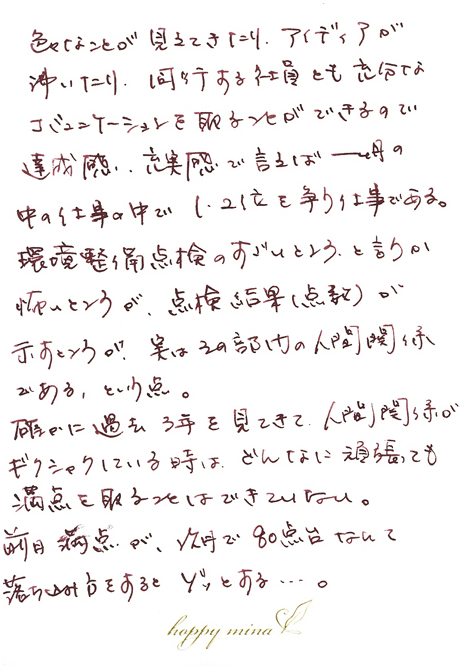 色々なことが見えてきたり、アイディアが
沸いたり、同行する社員とも充分な
コミュニケーションを取ることができるので
達成感、充実感で言えば一ヶ月の
中の仕事の中で1、2位を争う仕事である。
環境整備点検のすごいところ、と言うか
怖いところが、点検結果(点数)が
示すところが、実はその部門の人間関係
である、という点。
確かに過去3年を見てきて、人間関係が
ギクシャクしている時は、どんなに頑張っても
満点を取ることはできていない。
前月満点が、次月で80点台なんて
落ち込み方をするとゾッとする…。
happy mina